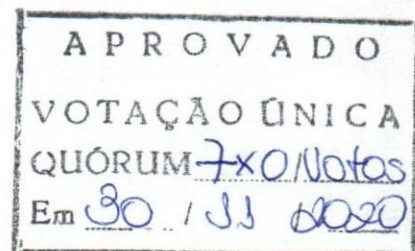 APROVADO
VOTAÇÃO ÚNICA
QUÓRUM 7x0 Votos
Em 30 / 11 / 2020